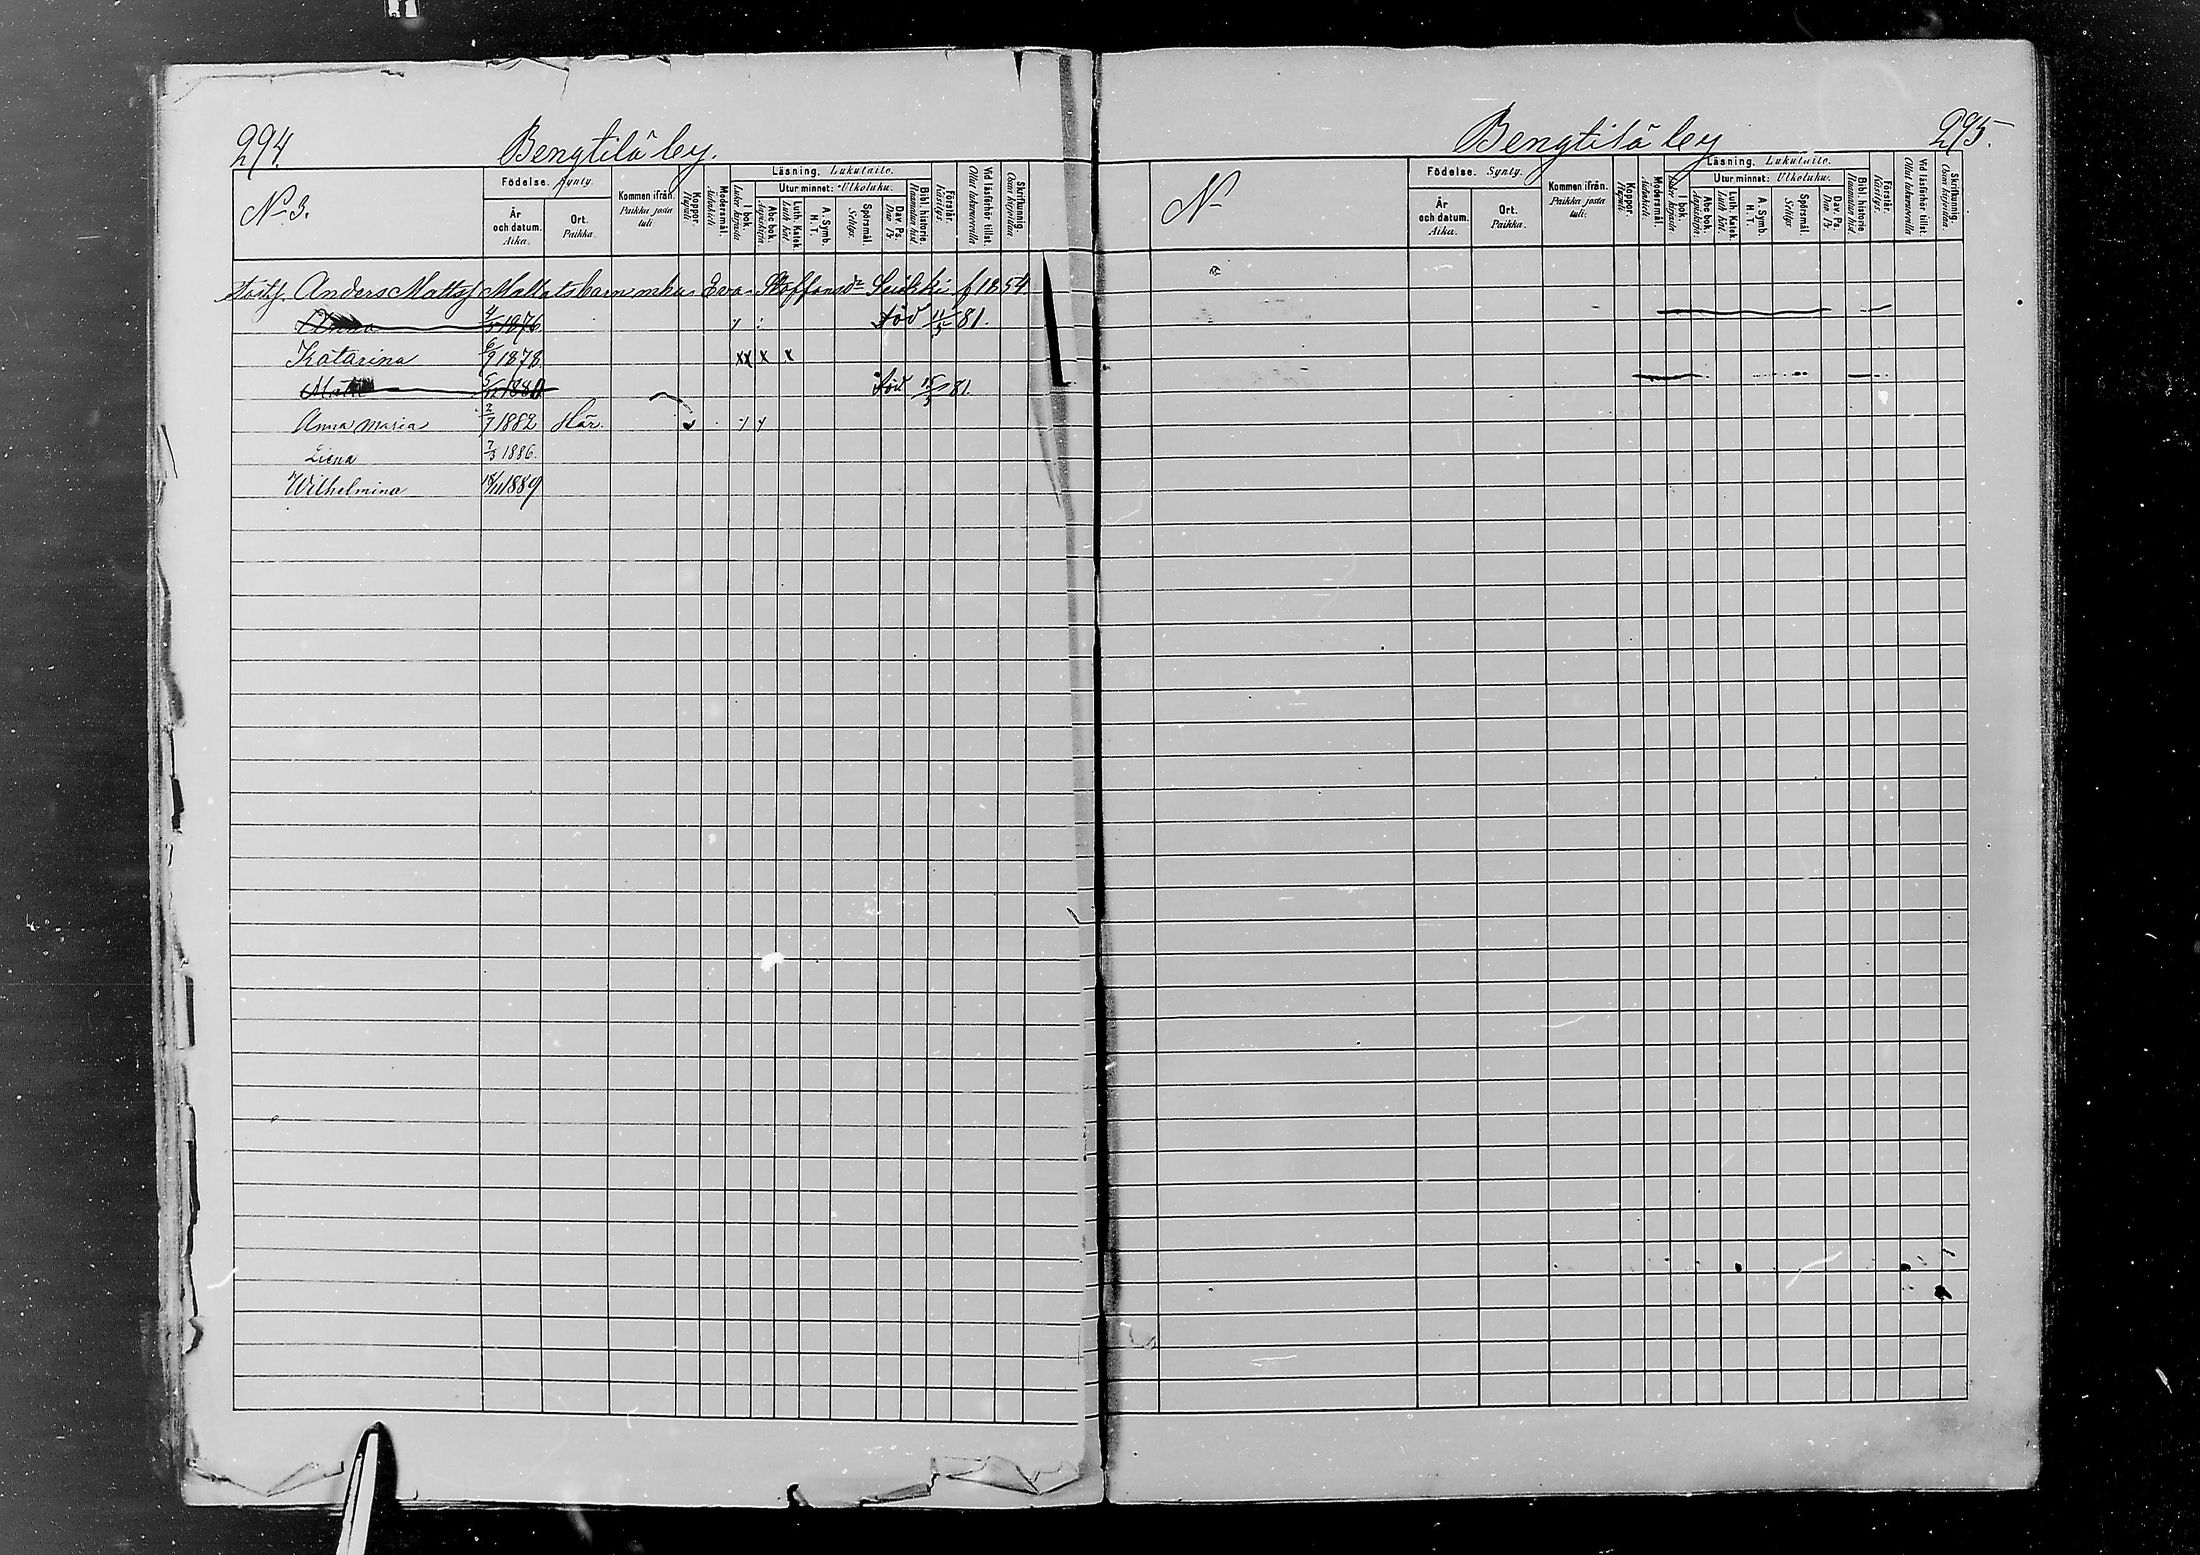 294
Bengtilä by.
No 3.
Födelse. Synty.
År och datum. Aika.
Ort. Paikka.
Kommen ifrån. Paikka josta tuli
Koppor. Rupuli
Modersmål. Äidinkieli
Läsning. Lukutaito.
I bok. Lukee kirjasta
Utur minnet: Ulkoluku.
Abc bok. Aapiskirja
Luth. Katek. Luth. kat.
A. Symb. H. T.
Spörsmål. Selitys
Dav. Ps. Dav. Ps.
Bibl. historie. Raamatun hist.
Förstår. Käsitys.
Vid läsförhör tillst. Ollut lukuvuorolla
Skriftkunnig. Osaa kirjoittaa
Anders Mattsf Eva Staffansdr f 1854
Anna 1876 x Död 11/5 81.
Katarina 6/9 1878 xx x x
Matts 1880 Död 15/5 81.
Anna Maria 2/7 1882 Här. x x
Liena 7/3 1886.
Wilhelmina 18/11 1889
Bengtilä by
295.
No
Födelse. Synty.
År och datum. Aika.
Ort. Paikka.
Kommen ifrån. Paikka josta tuli:
Koppor. Rupuli
Modersmål. Äidinkieli
Läsning. Lukutaito.
I bok. Lukee kirjasta
Utur minnet: Ulkoluku.
Abc bok. Aapiskirja
Luth. Katek. Luth. kat.
A. Symb. H. T.
Spörsmål Selitys
Dav. Ps. Dav. Ps
Bibl. historie Raamatun hist.
Förstår. Käsitys.
Vid läsförhör tillst. Ollut lukuvuorolla
Skriftkunnig. Osaa kirjoittaa